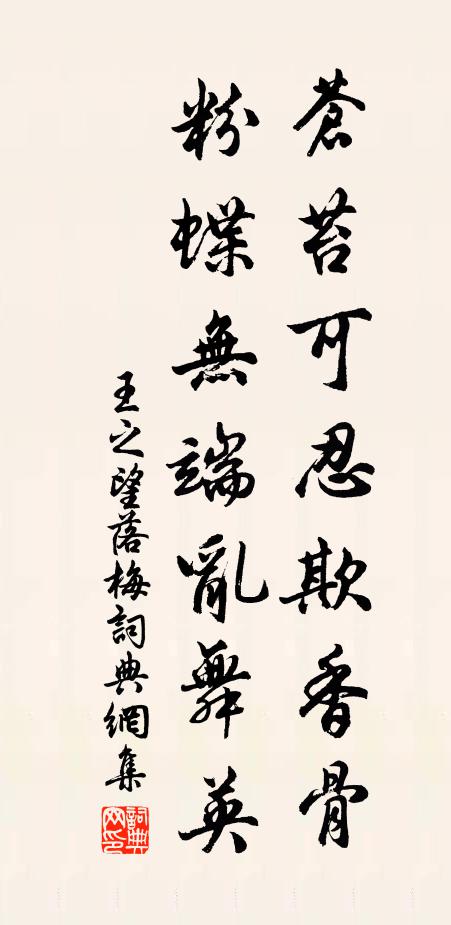 蒼苔可忍欺香骨
粉蝶無端亂舞英
王之望落梅詞典網集
詞典网印